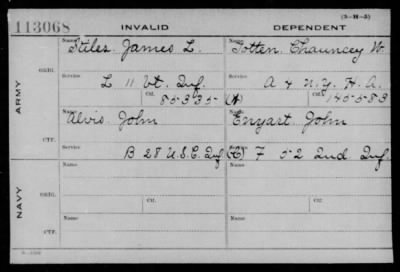 (3-H-5)
113068 INVALID DEPENDENT
Name Stiles, James L. Name Totten, Chauncey W.
ARMY
ORIG.
Service Service
L 11 Vt. Inf. A 4 N.Y. H.A.
Ctf. 85335 (A) Ctf. 145583
Name Alvis, John Name Enyart, John
CTF.
Service Service
B 28 U.S.C. Inf. (C) F 52 Ind. Inf.
NAVY
ORIG.
Name Name
Ctf. Ctf.
CTF.
Name Name